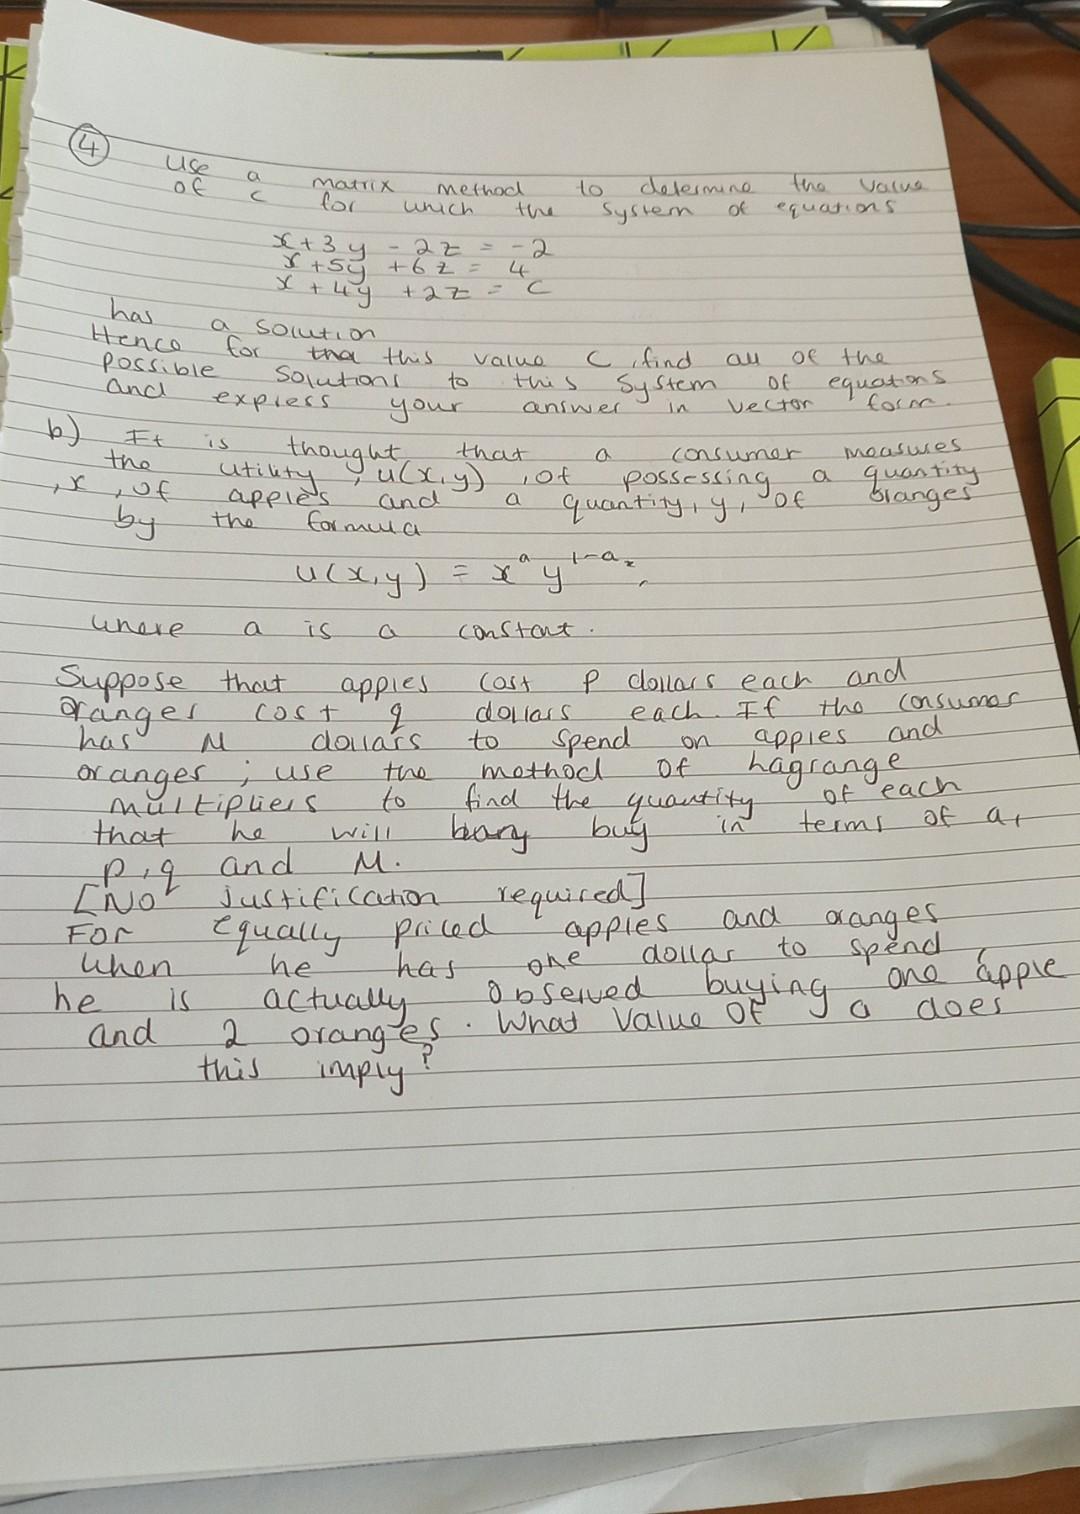 4
Use a matrix method to determine the value
of c for which the system of equations
x + 3y - 2z = -2
x + 5y + 6z = 4
x + 4y + 2z = c
has a solution
Hence for tha this value c, find all of the
possible solutions to this system of equations
and express your answer in vector form.
b) It is thought that a consumer measures
the utility, u(x,y), of possessing a quantity
,x, of apples and a quantity, y, of oranges
by the formula
u(x,y) = xᵃ y¹⁻ᵃ,
where a is a constant.
Suppose that apples cost p dollars each and
oranges cost q dollars each. If the consumer
has M dollars to spend on apples and
oranges; use the method of hagrange
multipliers to find the quantity of each
that he will buy in terms of a,
p,q and M.
[No justification required]
For equally priced apples and oranges
when he has one dollar to spend
he is actually observed buying one apple
and 2 oranges. What value of a does
this imply?